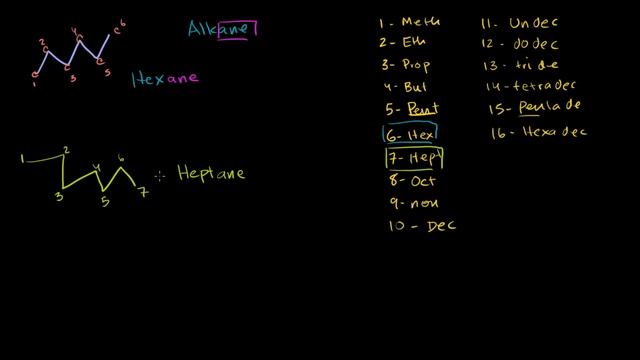 Alkane
Hexane
C C C C C C
1 2 3 4 5 6
Heptane
1 2 3 4 5 6 7
1 - Meth
2 - Eth
3 - Prop
4 - But
5 - Pent
6 - Hex
7 - Hept
8 - Oct
9 - non
10 - Dec
11 - Undec
12 - dodec
13 - tride
14 - tetradec
15 - Pentade
16 - Hexadec